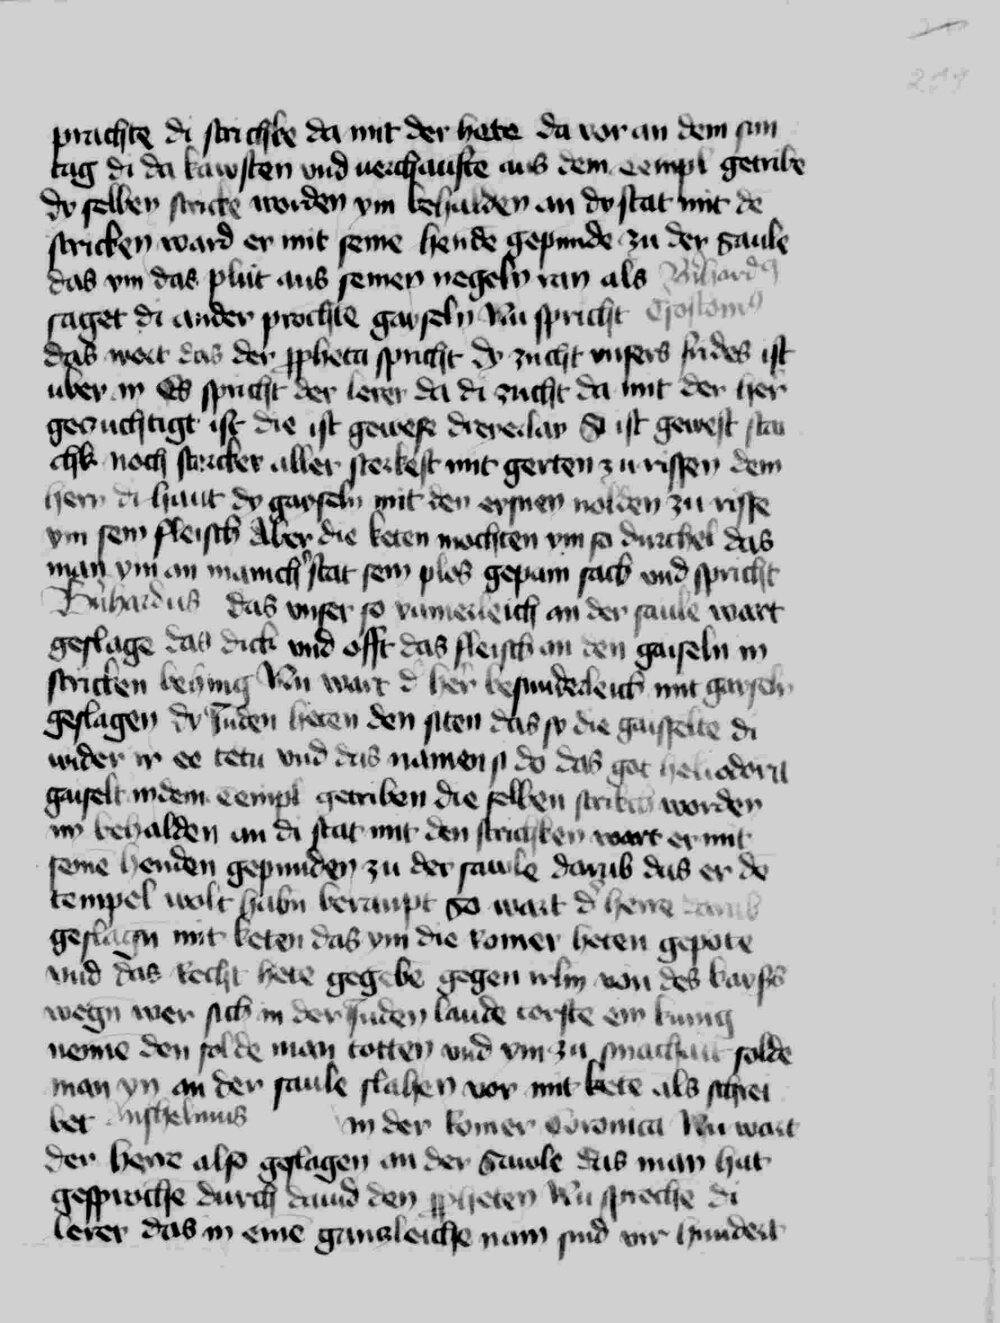 prachte di strichke da mit der hete da vor an dem sun
tag di da kawften vnd verchaufte aus dem templ getribe
dy selben stricke worden ym behalden an dy stat mit de
stricken ward er mit seine hende gepunde zu der Saule
das ym das plut aus seinen negeln ran als
saget di ander prochte gayseln Nu spricht
das wort das der ppheta spricht dy zucht vnsers frides ist
uber in Es spricht der lerer da di zucht da mit der her
geczuchtigt ist die ist gewest dreyerlay Si ist gewest star
chk noch stercker aller sterkest mit gerten zu rissen dem
hern di haut dy gayseln mit den eysnen nolden zu risse
ym sein fleisch Aber die keten mochten ym so durchel das
man ym an manich stat sein plos gepain sach vnd spricht
das vnser so an der saule wart
geslage das dick vnd offt das fleisch an den gaiseln in
stricken Nu wart d her besunderleich mit gayseln
geslagen dy Juden heten den siten das sy die gaisselte di
wider ir ee tetn vnd das namen si do das got heliodora
gaiselt in dem templ getriben die selben worden
im behalden an di stat mit den strichken wart er mit
seine henden gepunden zu der saule darub das er de
tempel wolt habn beraupt So wart d herre
geslagn mit keten das ym die Romer heten gepote
vnd das Recht hete gegebe gegen irlm von des kaysers
wegn wer sich in der Juden lande torste ein kunig
nenne den solde man totten vnd ym zu solde
man yn an der saule slahen vor mit kete als schrei
bet in der Romer Coronica Nu wart
der herre also geslagen an der Sawle das man hat
gesproche durch dauid den ppheten Nu spreche di
lerer das in eine nam sind vir hundert